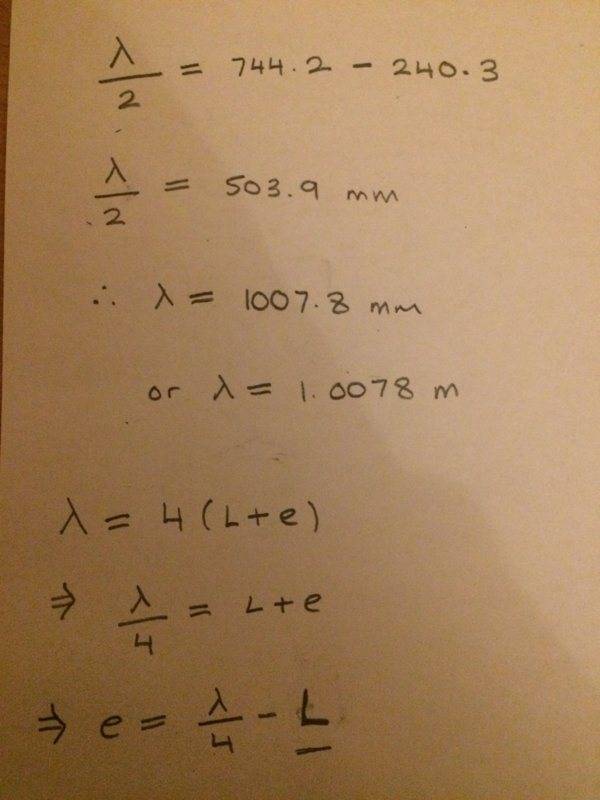 λ/2 = 744.2 - 240.3
λ/2 = 503.9 mm
∴ λ = 1007.8 mm
or λ = 1.0078 m
λ = 4(L+e)
⇒ λ/4 = L+e
⇒ e = λ/4 - L